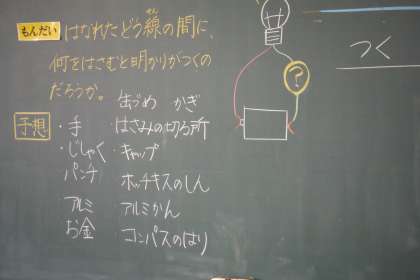 もんだい はなれたどう線の間に、
せん
何をはさむと明かりがつくの
だろうか。
缶づめ かぎ
予想 ・手 はさみの切る所
・じしゃく ・キャップ
パンチ ホッチキスのしん
アルミ アルミかん
お金 コンパスのはり
?
つく